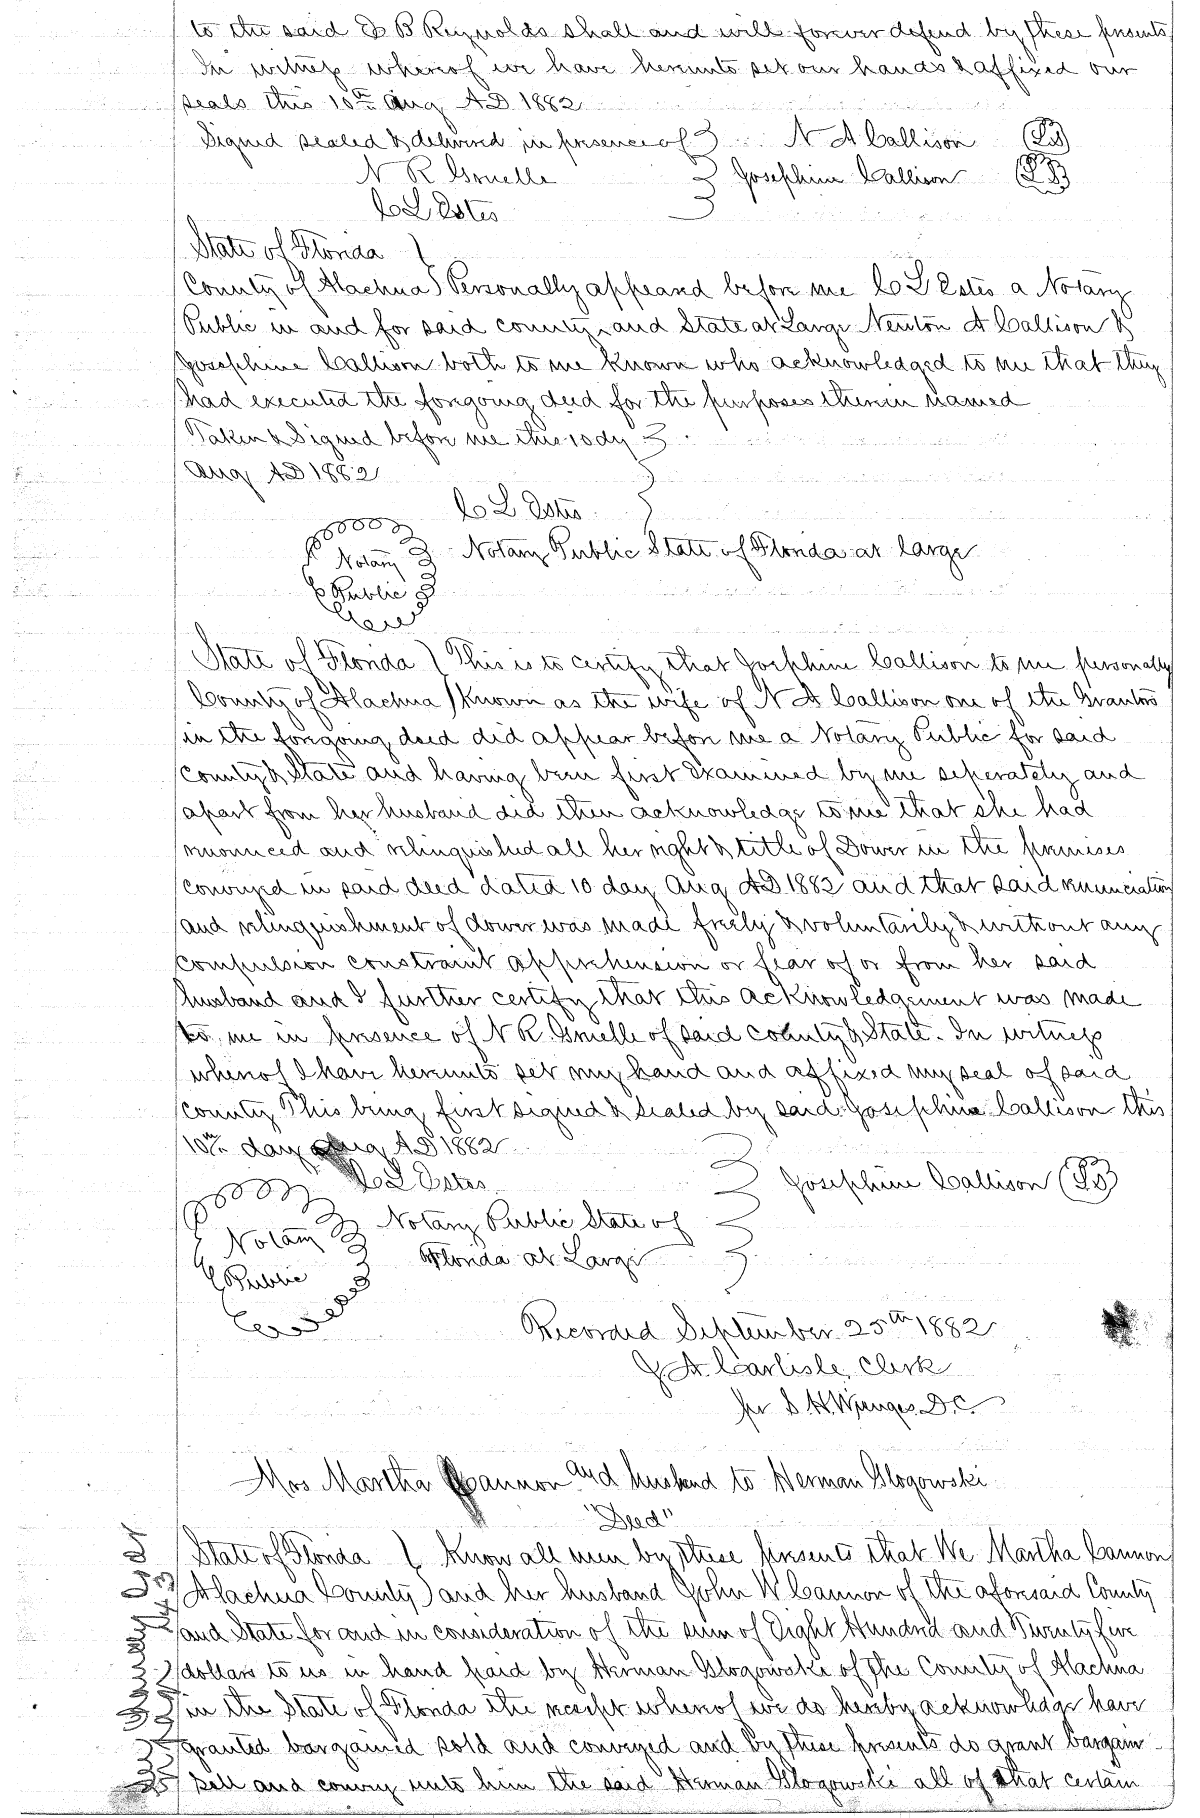 to the said E B Reynolds shall and will forever defend by these presents
In witness whereof we have hereunto set our hands & affixed our
seals this 10th Aug AD 1882
Signed sealed & delivered in presence of N A Callison (LS)
N R Gruelle Josephine Callison (LS)
C L Estes
State of Florida
County of Alachua Personally appeared before me C L Estes a Notary
Public in and for said county and State at Large Newton A Callison &
Josephine Callison both to me known who acknowledged to me that they
had executed the foregoing deed for the purposes therein named
Taken & Signed before me this 10 dy
Aug AD 1882
C L Estes
Notary Notary Public State of Florida at large
Public
State of Florida This is to certify that Josephine Callison to me personally
County of Alachua known as the wife of N A Callison one of the Grantors
in the foregoing deed did appear before me a Notary Public for said
County & State and having been first examined by me seperately and
apart from her husband did then acknowledge to me that she had
renounced and relinquished all her right & title of Dower in the premises
conveyed in said deed dated 10 day Aug AD 1882 and that said renunciation
and relinquishment of dower was made freely & voluntarily & without any
compulsion constraint apprehension or fear of or from her said
husband and I further certify that this acknowledgement was made
to me in presence of N R Gruelle of said county & State. In witness
whereof I have hereunto set my hand and affixed my seal of said
county This being first signed & sealed by said Josephine Callison this
10th day Aug AD 1882
C L Estes Josephine Callison (LS)
Notary Notary Public State of
Public Florida at Large
Recorded September 25th 1882
J A Carlisle Clerk
per S. H. Wienges D.C.
Mrs Martha Cannon and husband to Herman Glogowski
"Deed"
State of Florida Know all men by these presents that We Martha Cannon
Alachua County and her husband John W Cannon of the aforesaid County
and State for and in consideration of the sum of Eight Hundred and Twenty five
dollars to us in hand paid by Herman Glogowski of the County of Alachua
in the State of Florida the receipt whereof we do hereby acknowledge have
granted bargained sold and conveyed and by these presents do grant bargain
sell and convey unto him the said Herman Glogowski all of that certain